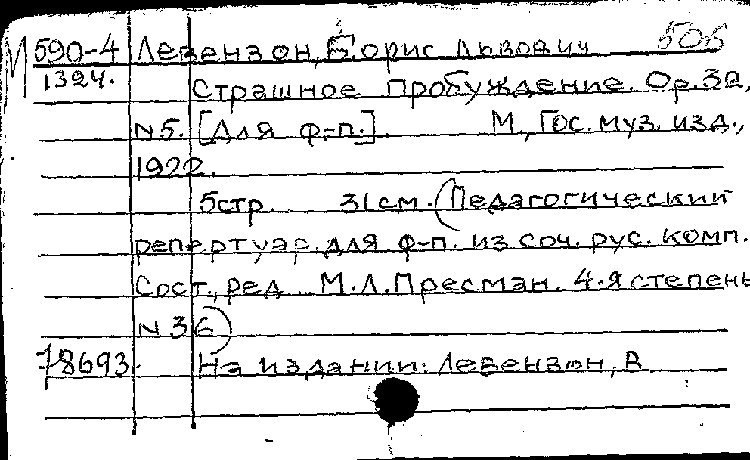 М 590-4 Левензон, Борис Львович 506
1324. Страшное пробуждение. Ор.32,
N 5. [Для ф-п.]. М., Гос. муз. изд.,
1922.
5стр. 31см. (Педагогический
репертуар для ф-п. из соч. рус. комп.
Сост., ред. М.Л.Пресман. 4-я степень
N 36)
78693. На издании: Левензон, В